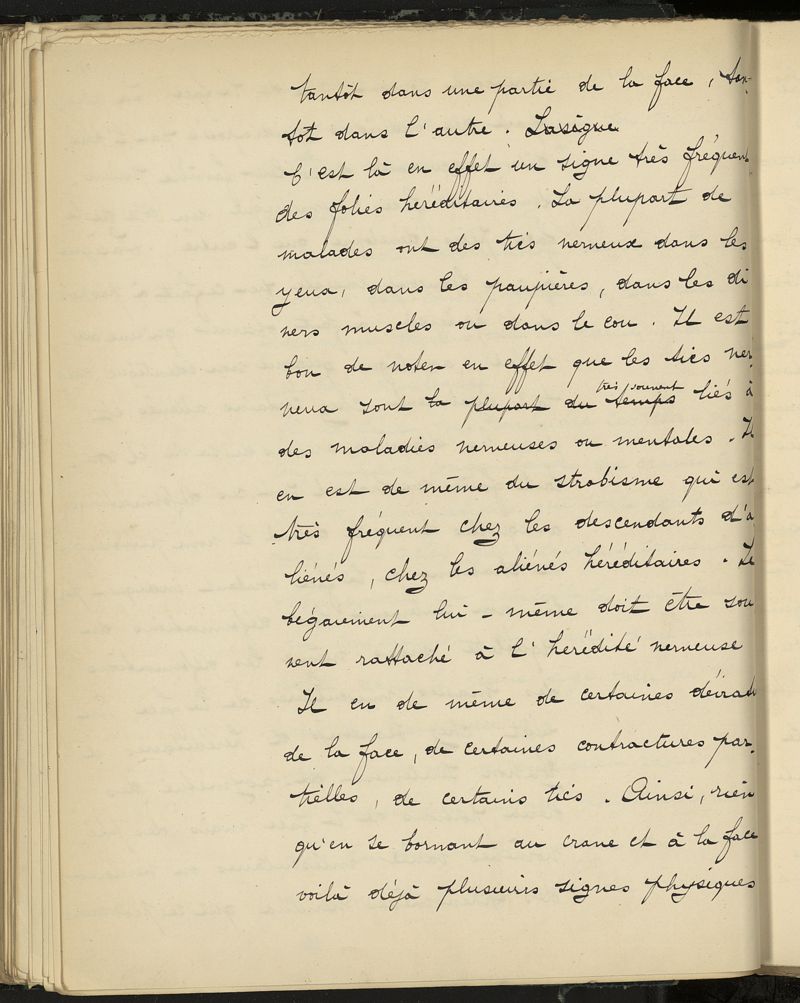 tantôt dans une partie de la face, tan-
tôt dans l'autre. Lasègue
C'est là en effet un signe très fréquent
des folies héréditaires. La plupart de
malades ont des tics nerveux dans les
yeux, dans les paupières, dans les di
vers muscles ou dans le cou. Il est
bon de noter en effet que les tics ner-
veux sont la plupart du temps très souvent liés à
des maladies nerveuses ou mentales. Il
en est de même du strabisme qui est
très fréquent chez les descendants d'a
liénés, chez les aliénés héréditaires. Le
bégaiement lui-même doit être sou
vent rattaché à l'hérédité nerveuse
Il en de même de certaines déviat
de la face, de certaines contractures par-
tielles, de certains tics. Ainsi, rien
qu'en se bornant au crane et à la face
voilà déjà plusieurs signes physiques